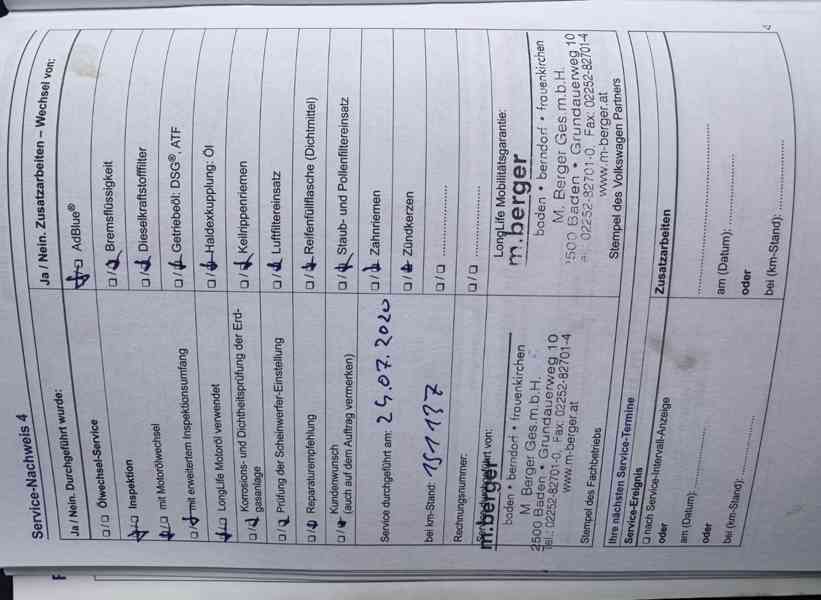 Service-Nachweis 4
Ja / Nein. Durchgeführt wurde:
/ Ölwechsel-Service
Inspektion
mit Motorölwechsel
mit erweitertem Inspektionsumfang
LongLife Motoröl verwendet
Korrosions- und Dichtheitsprüfung der Erd-
gasanlage
Prüfung der Scheinwerfer-Einstellung
Reparaturempfehlung
Kundenwunsch
(auch auf dem Auftrag vermerken)
Service durchgeführt am: 29.07.2020
bei km-Stand: 151137
Rechnungsnummer:
m.berger
baden • berndorf • frauenkirchen
M. Berger Ges.m.b.H.
2500 Baden • Grundauerweg 10
Tel.: 02252-82701-0, Fax: 02252-82701-4
www.m-berger.at
Stempel des Fachbetriebs
Ihre nächsten Service-Termine
Service-Ereignis
nach Service-Intervall-Anzeige
oder
am (Datum):
oder
bei (km-Stand):
Ja / Nein. Zusatzarbeiten – Wechsel von:
AdBlue®
Bremsflüssigkeit
Dieselkraftstofffilter
Getriebeöl: DSG®, ATF
Haldexkupplung: Öl
Keilrippenriemen
Luftfiltereinsatz
Reifenfüllflasche (Dichtmittel)
Staub- und Pollenfiltereinsatz
Zahnriemen
Zündkerzen
LongLife Mobilitätsgarantie:
m.berger
baden • berndorf • frauenkirchen
M. Berger Ges.m.b.H.
2500 Baden • Grundauerweg 10
02252-82701-0, Fax: 02252-82701-4
www.m-berger.at
Stempel des Volkswagen Partners
Zusatzarbeiten
am (Datum):
oder
bei (km-Stand):
4